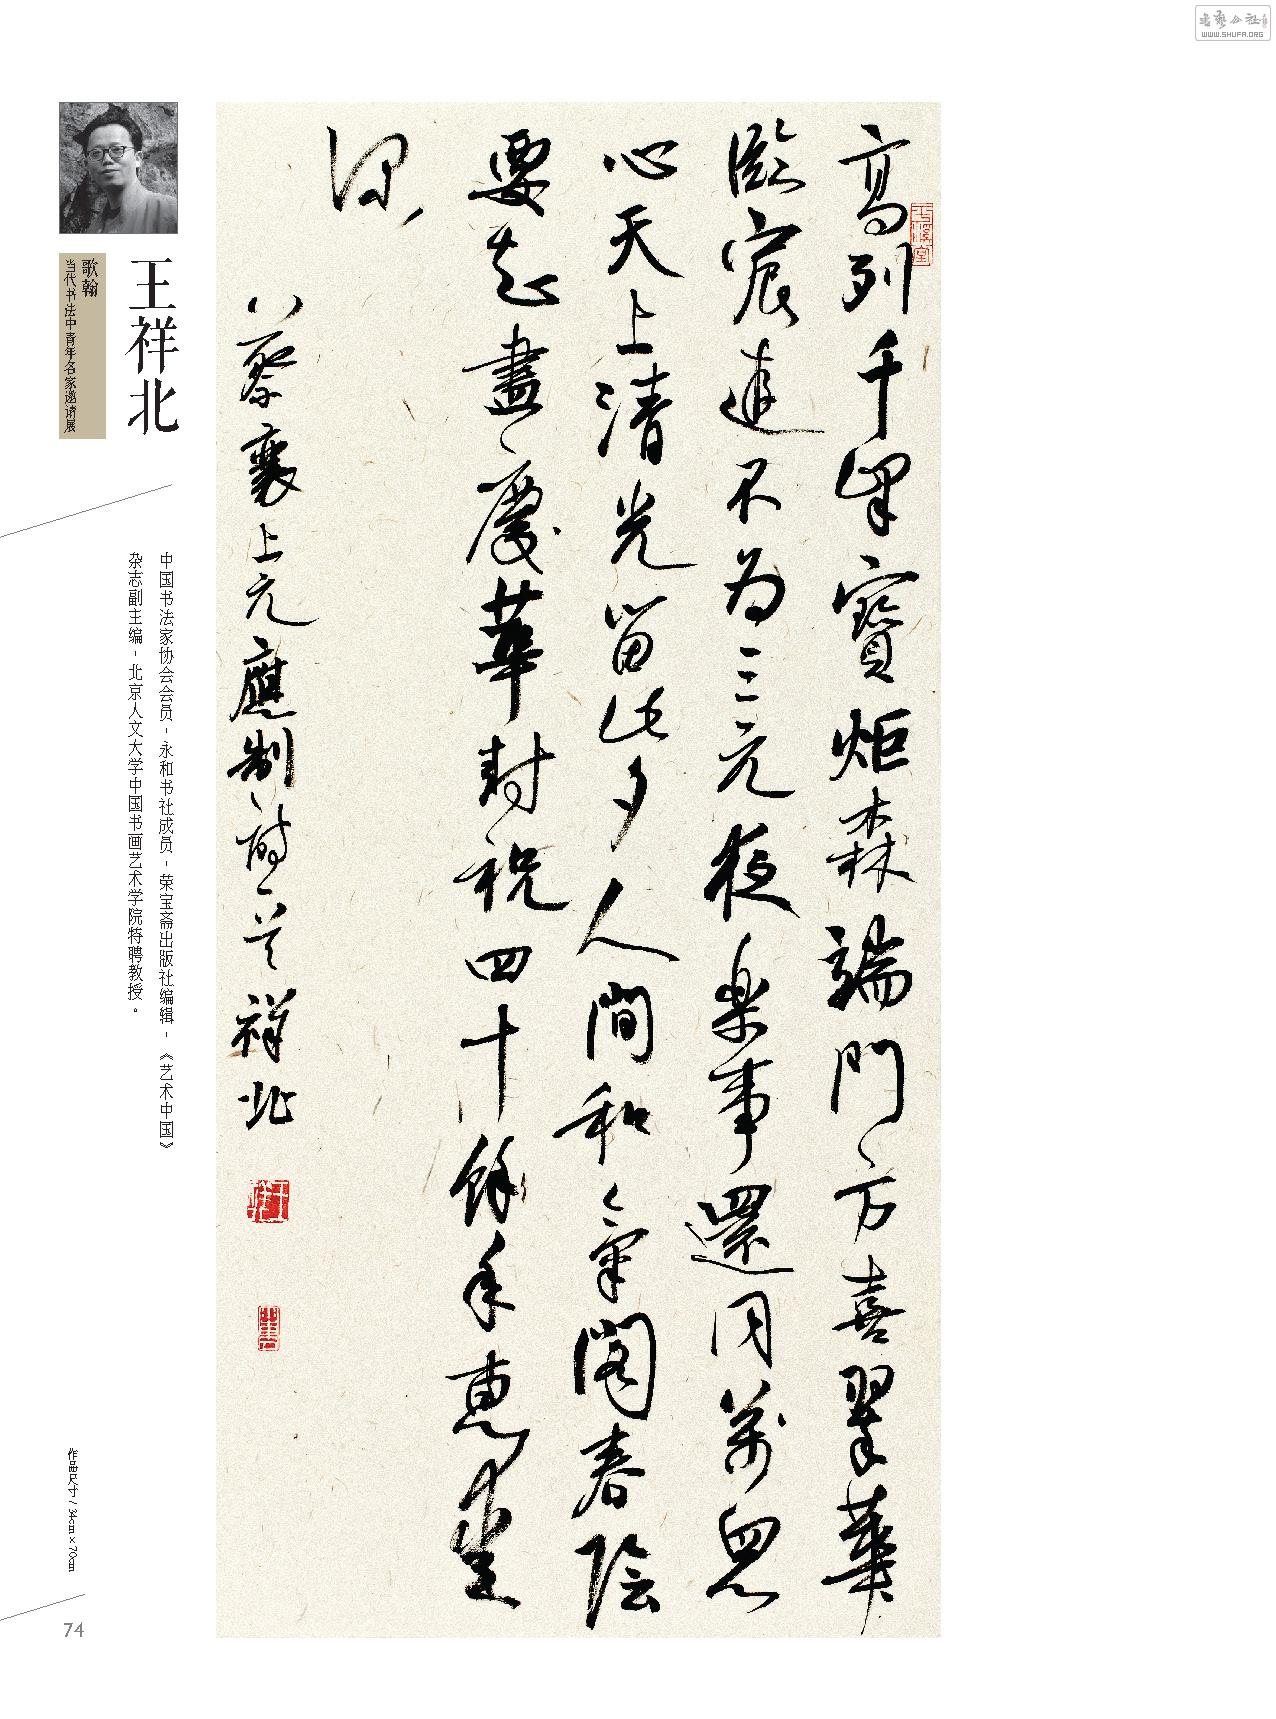 書藝公社
WWW.SHUFA.ORG
王祥北
歌翰
当代书法中青年名家邀请展
中国书法家协会会员-永和书社成员-荣宝斋出版社编辑-《艺术中国》
杂志副主编-北京人文大学中国书画艺术学院特聘教授。
高列千峰寶炬森端門方喜翠華
臨宸遊不为三元夜楽事還同萬眾
心天上清光留此夕人間和氣閣春陰
要知盡慶華封祝四十餘年惠愛
深
蔡襄上元應制詩一首祥北
作品尺寸 / 34cm×70cm
74